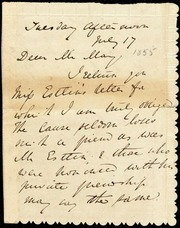 Tuesday Afternoon
July 17
Dear Mr May, 1855
I return you
Miss Estlin's letter for
which I am truly obliged
The cause seldom loses
such a friend as was
Mr Estlin, & those who
were honored with his
private friendship
may say the same